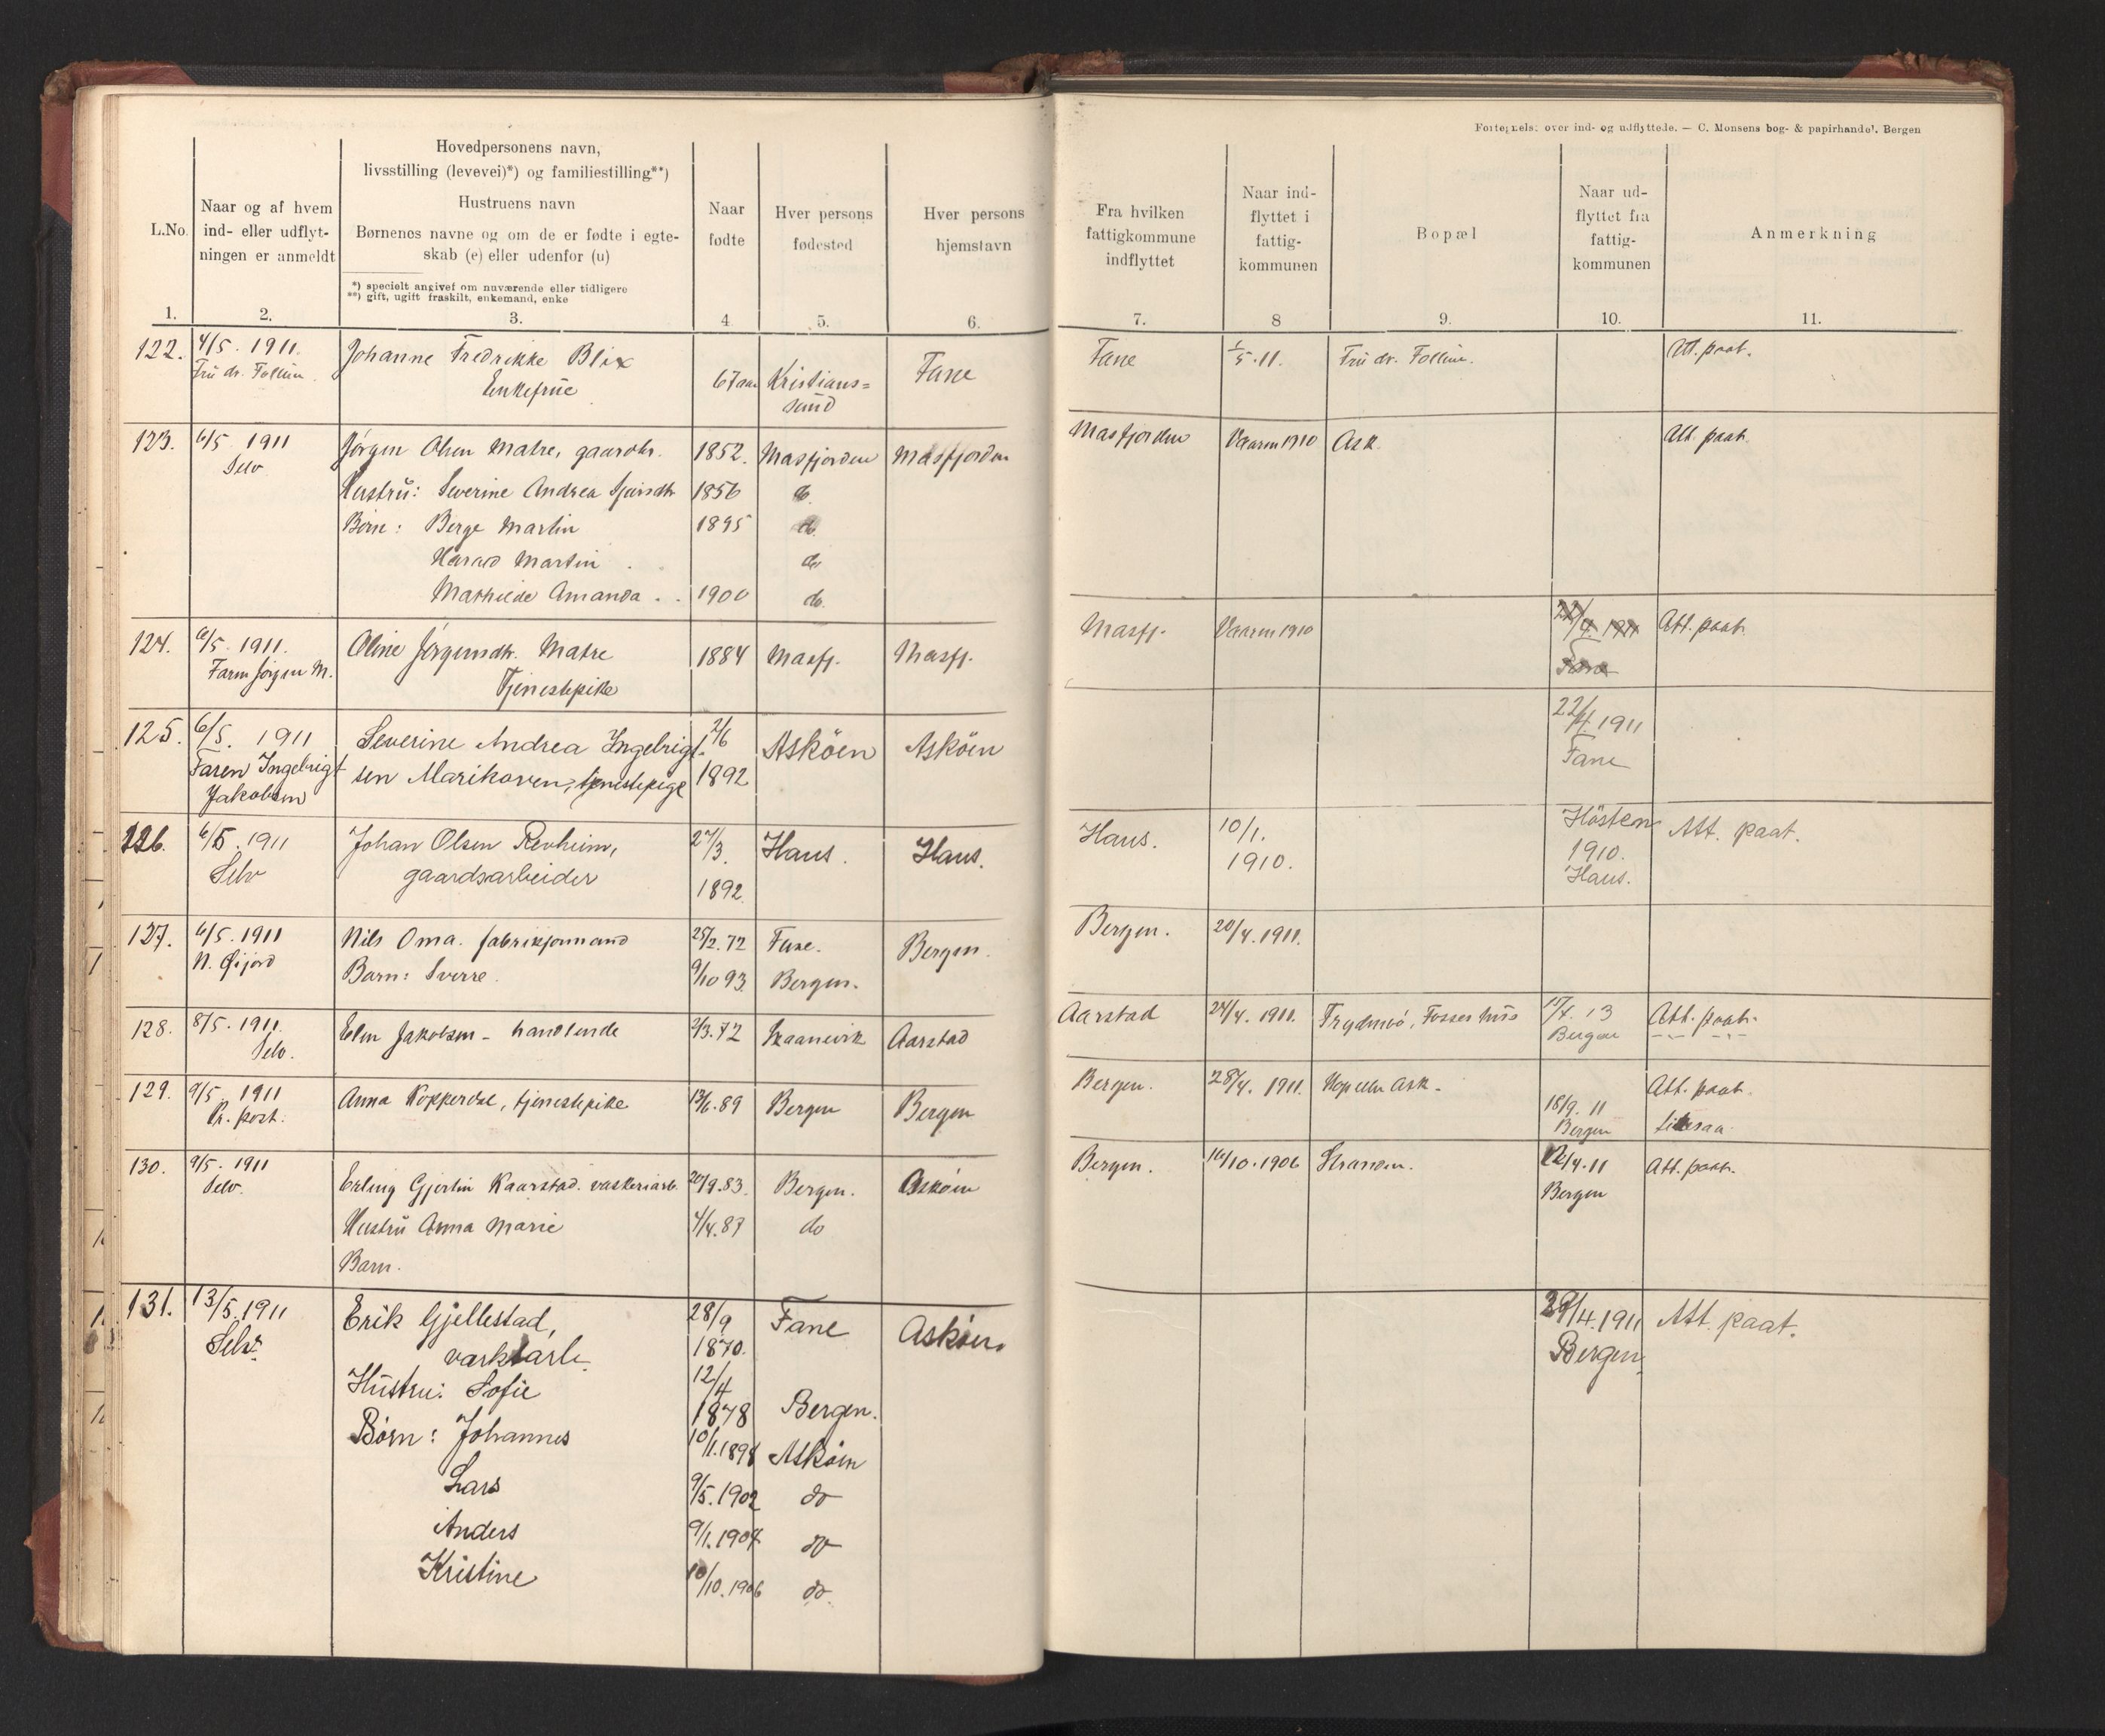 Fortegnelse over ind- og udflyttede. — C. Monsens bog- & papirhandel. Bergen
L.No.
Naar og af hvem
ind- eller udflyt-
ningen er anmeldt
Hovedpersonens navn,
livsstilling (levevei)*) og familiestilling**)
Hustruens navn
Børnenes navne og om de er fødte i egte-
skab (e) eller udenfor (u)
*) specielt angivet om nuværende eller tidligere
**) gift, ugift fraskilt, enkemand, enke
Naar
fødte
Hver persons
fødested
Hver persons
hjemstavn
Fra hvilken
fattigkommune
indflyttet
Naar ind-
flyttet i
fattig-
kommunen
Bopæl
Naar ud-
flyttet fra
fattig-
kommunen
Anmerkning
1. 2. 3. 4 5. 6. 7. 8 9. 10. 11.
122. 4/5. 1911. Johanne Fredrikke Blix Fane 1/5.11. Fru dr. Follum. Att. paat.
Fru dr. Follum. Enkefrue 67 aar Kristians= Fane
sund
123. 6/5 1911 Jørgen Olsen Matre, gaardbr. 1852. Masfjorden Masfjorden Masfjorden Vaaren 1910 Ask. Att. paat.
Selv
Hustru: Severine Andrea 1856 do.
Børn: Berge Martin 1895 do.
Harald Martin do.
Mathilde Amanda 1900 do.
124. 6/5. 1911. Oline Jørgensdtr. Matre 1884 Masfj. Masfj. Masfj. Vaaren 1910 22/4 1911 Att. paat.
Faren Jørgen M. Tjenestepike Fane
125. 6/5. 1911 Severine Andrea Ingebrigt- 2/6 Askøen Askøen 22/4.1911
Faren Ingebrigt sen Marikoven, tjenestepige 1892 Fane
Jakobsen
126. 6/5.1911 Johan Olsen Revheim, 27/3. Haus. Haus. Haus. 10/1. Høsten Att. paat.
Selv gaardsarbeider 1892 1910. 1910.
Haus.
127. 6/5.1911 Nils Oma. fabrikformand 25/2.72 Fuse. Bergen. Bergen. 20/4.1911.
N. Øijord Barn: Sverre. 9/10 93. Bergen.
128. 8/5.1911. Elen Jakobsen - handlende 2/3.72 Skaanevik Aarstad Aarstad 24/4. 1911. Frydenbö, Fosses hus 17/4.13 Att. paat.
Selv. Bergen
129. 9/5. 1911 Anna Kopperdal, tjenestepike 13/6.89 Bergen Bergen Bergen. 28/4. 1911. Ask. Att. paat.
Pr. post. 18/9. 11
Bergen
130. 9/5. 1911 Erling Gjertin Kaarstad. 20/9.83. Bergen. Askøen Bergen. 16/10.1906 Stranden. 22/4.11 Att. paat.
Selv. Bergen
Hustru Anna Marie 4/4.87 do
Barn.
131. 13/5.1911 Erik Gjellestad, 28/9 Fane Askøen. 29/4.1911 Att. paat.
Selv. verkstarb. 1870. Bergen.
Hustru: Sofie 12/4
1878 Bergen.
Børn: Johannes 10/1.1898 Askøen
Lars 9/5.1902 do
Anders 9/1.1904 do
Kristine 10/10.1906 do.